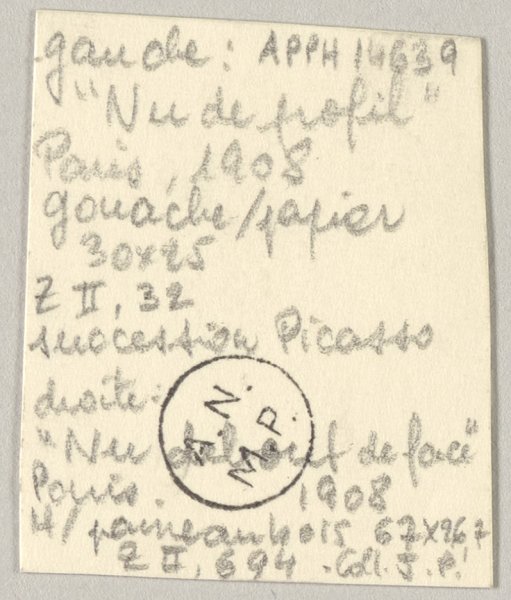 gauche: APPH 14639
"Nu de profil"
Paris, 1908
gouache/papier
30x25
Z II, 32
succession Picasso
droite:
A.N.
M.P.
"Nu debout de face"
Paris. 1908
H/panneau bois 67x26,7
Z II, 694 - Coll. J. P.